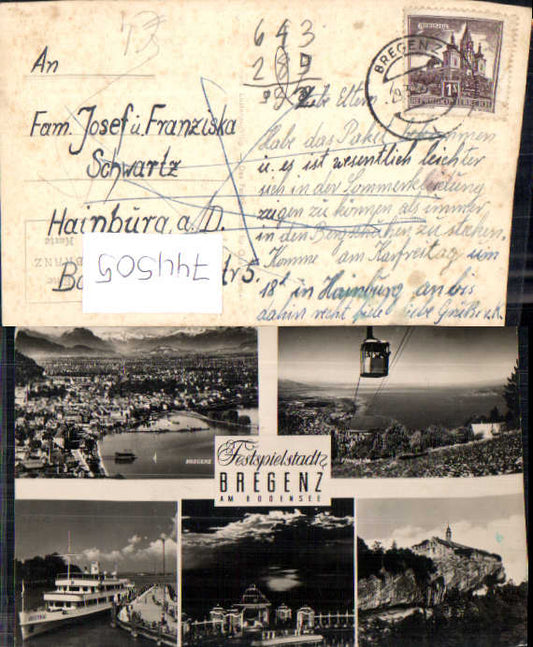 An
Fam. Josef u. Franziska
Schwartz
Hainburg a. D.
744505
Str 5.
643
289
Liebe Eltern
Habe das Paket bekommen
u. es ist wesentlich leichter
sich in der Sommerkleidung
zeigen zu können als immer
in den Bergschuhen zu stecken.
Komme am Karfreitag um
18h in Hainburg an bis
dahin recht viele liebe Grüße u. K
BREGENZ
1S
REPUBLIK ÖSTERREICH
Festspielstadt
BREGENZ
AM BODENSEE
BREGENZ
AUSTRIA